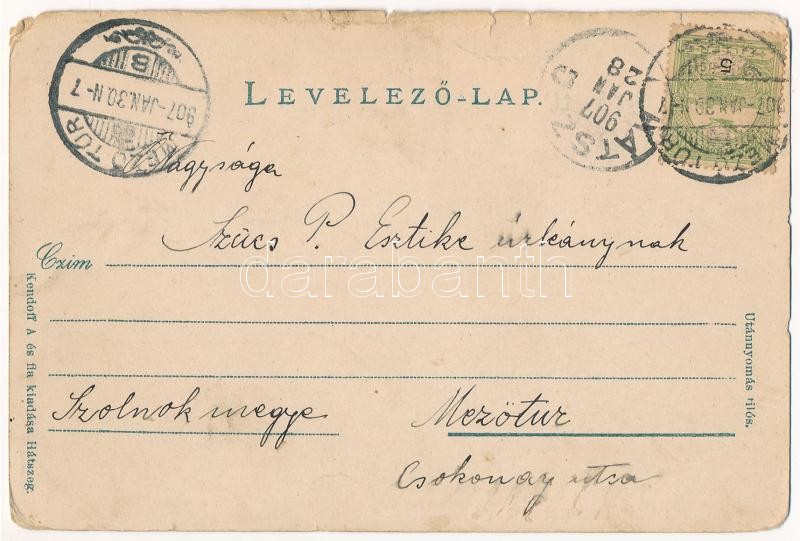 LEVELEZŐ-LAP.
MEZŐTÚR
907-JAN.30.N-7
B
HÁTSZEG
907
JAN
28
5
907-JAN.30.N-7
Nagysága
Szücs P. Esztike úrleánynak
Czim
Szolnok megye
Mezötur
Csokonay utca
Kendoff A és fia kiadása Hátszeg.
Utánnyomás tilos.
darabanth